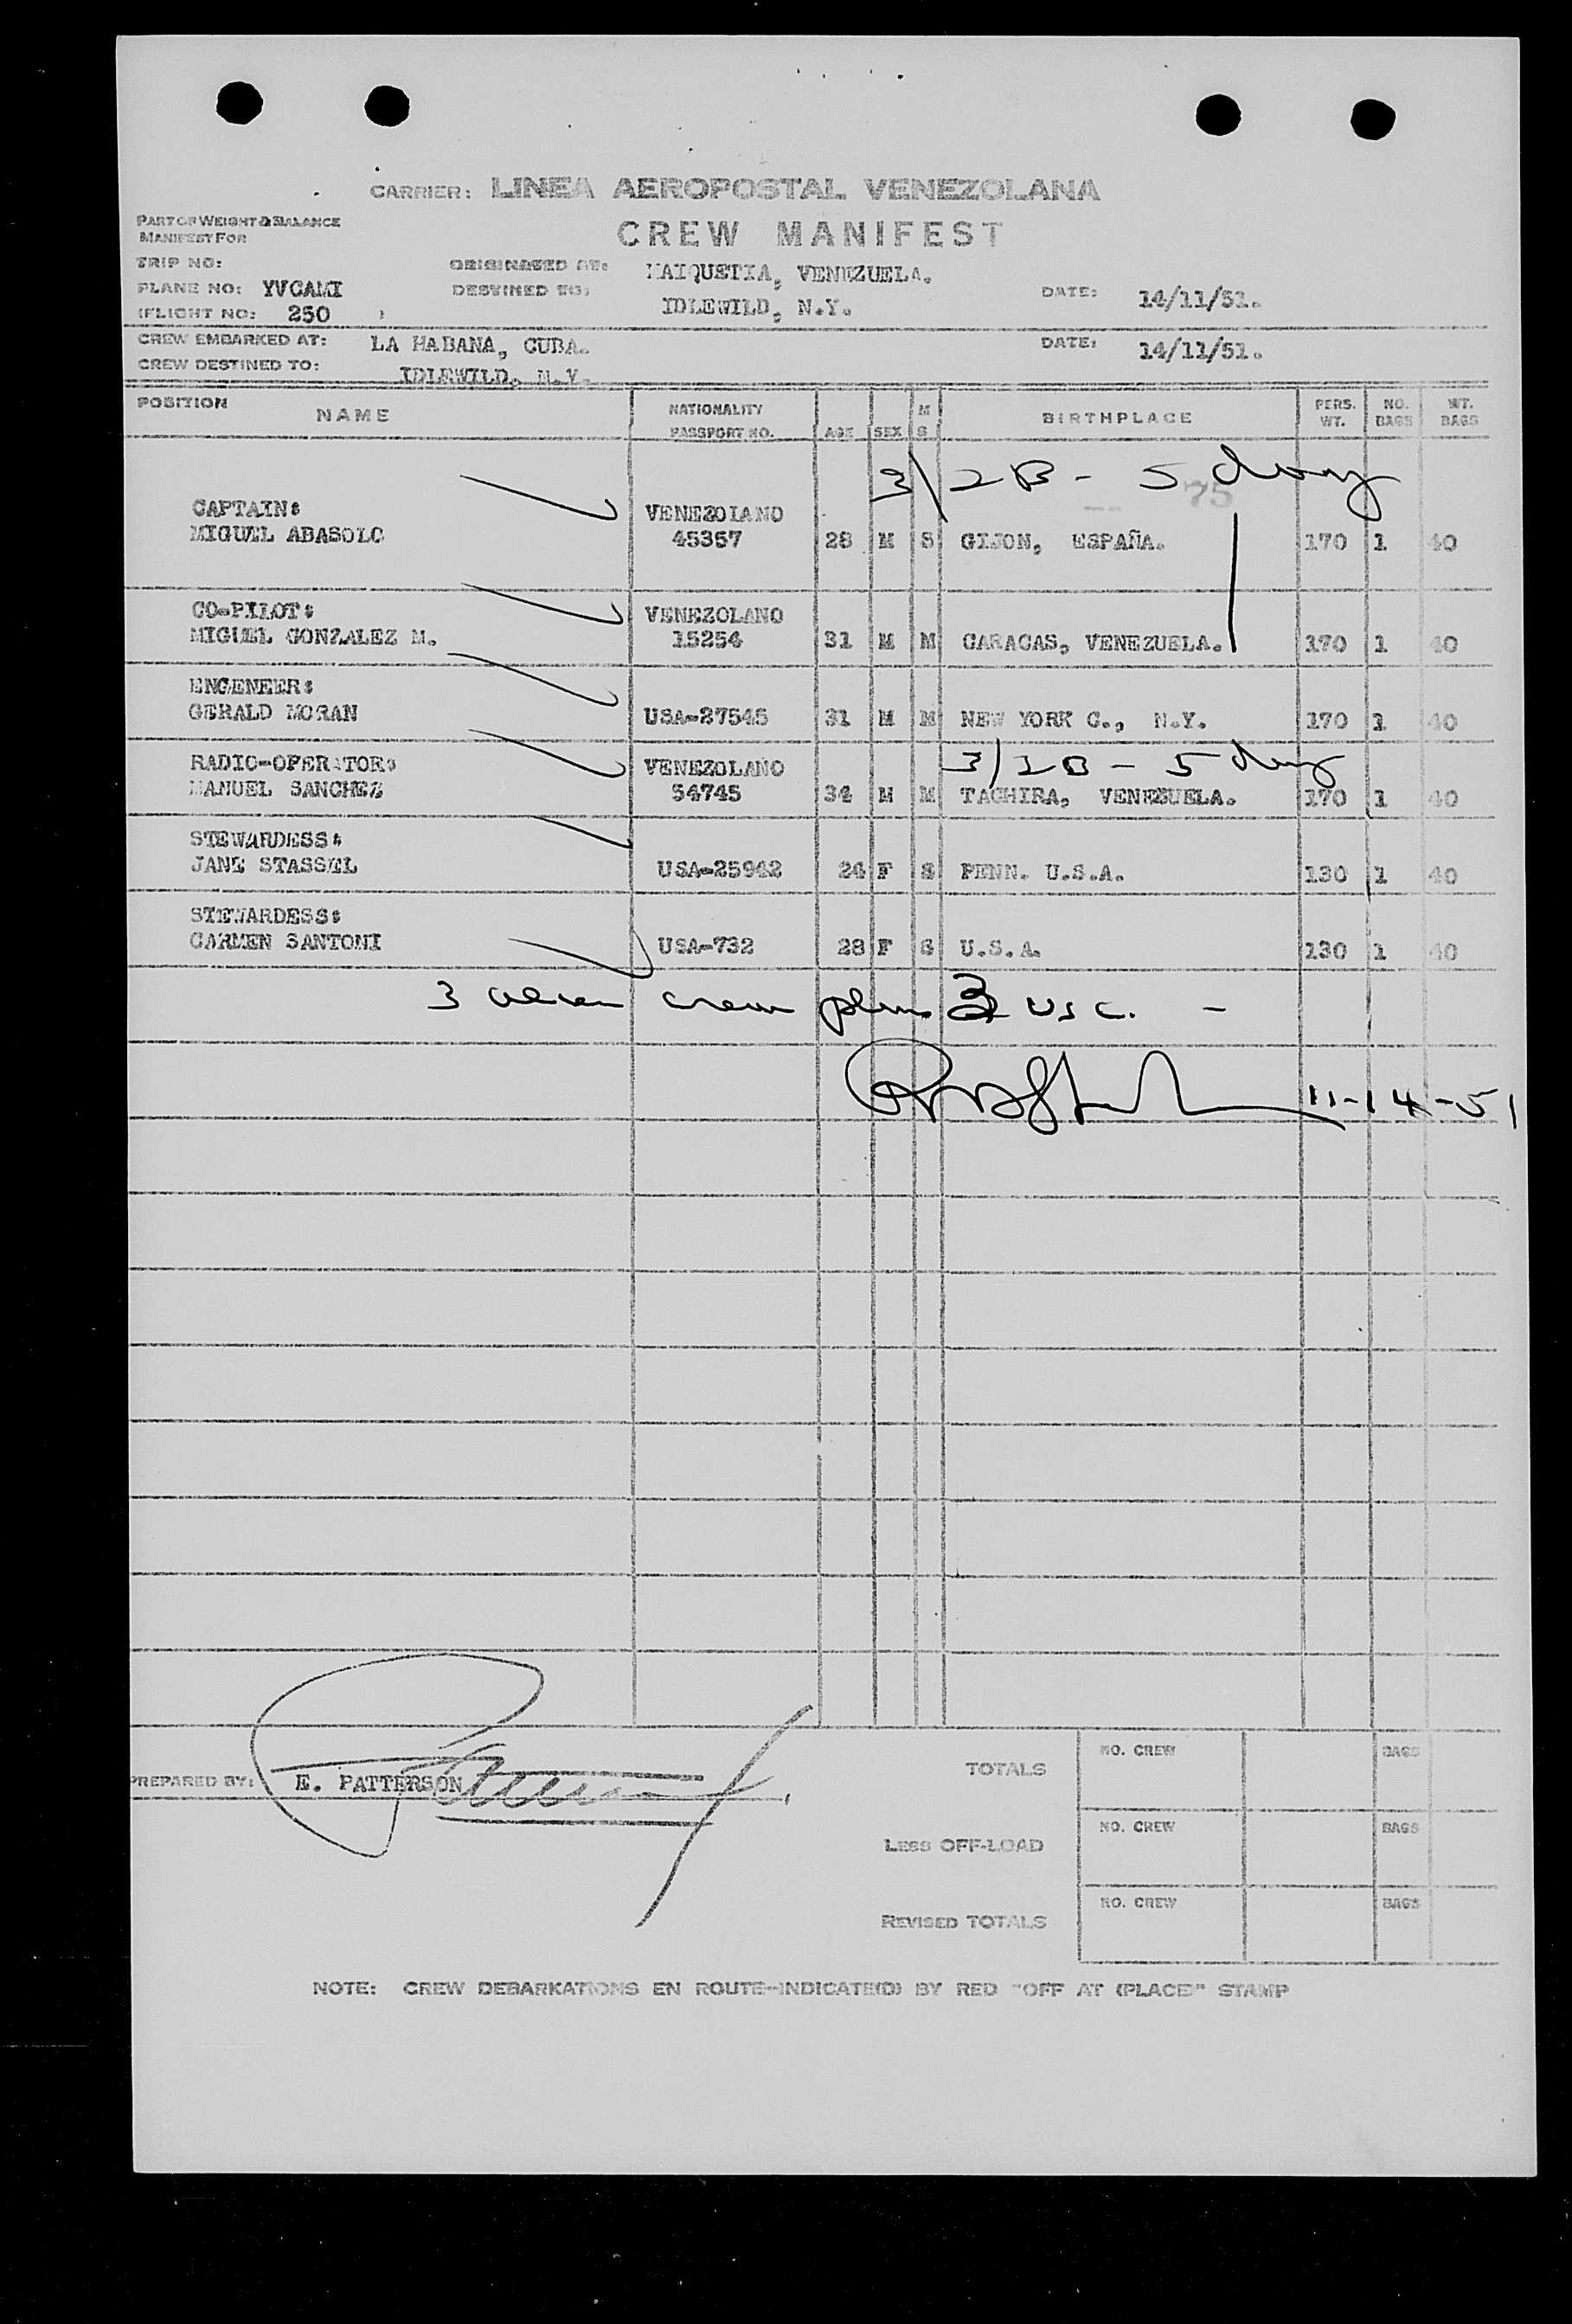 CARRIER: LINEA AEROPOSTAL VENEZOLANA
PART OF WEIGHT & BALANCE
MANIFEST FOR
CREW MANIFEST
TRIP NO:
ORIGINATED AT: MAIQUETIA, VENEZUELA.
PLANE NO: YVCAMI
DESTINED TO: IDLEWILD, N.Y.
DATE: 14/11/51.
(FLIGHT NO: 250 )
CREW EMBARKED AT: LA HABANA, CUBA.
DATE: 14/11/51.
CREW DESTINED TO: IDLEWILD, N.Y.
POSITION NAME NATIONALITY PASSPORT NO. AGE SEX M S BIRTHPLACE PERS. WT. NO. BAGS WT. BAGS
3/2B - 5 days
75
CAPTAIN: VENEZOLANO
MIGUEL ABASOLO 45367 28 M S GIJON, ESPAÑA. 170 1 40
CO-PILOT: VENEZOLANO
MIGUEL GONZALEZ M. 15254 31 M M CARACAS, VENEZUELA. 170 1 40
ENGENEER:
GERALD MORAN USA-27545 31 M M NEW YORK C., N.Y. 170 1 40
RADIO-OPERATOR: VENEZOLANO 3/2B - 5 days
MANUEL SANCHEZ 54745 34 M M TACHIRA, VENEZUELA. 170 1 40
STEWARDESS:
JANE STASSEL USA-25942 24 F S PENN. U.S.A. 130 1 40
STEWARDESS:
CARMEN SANTONI USA-732 28 F S U.S.A. 130 1 40
3 alien crew plus 3 USC. -
11-14-51
TOTALS NO. CREW BAGS
PREPARED BY: E. PATTERSON
LESS OFF-LOAD NO. CREW BAGS
REVISED TOTALS NO. CREW BAGS
NOTE: CREW DEBARKATIONS EN ROUTE-INDICATE(D) BY RED "OFF AT (PLACE)" STAMP